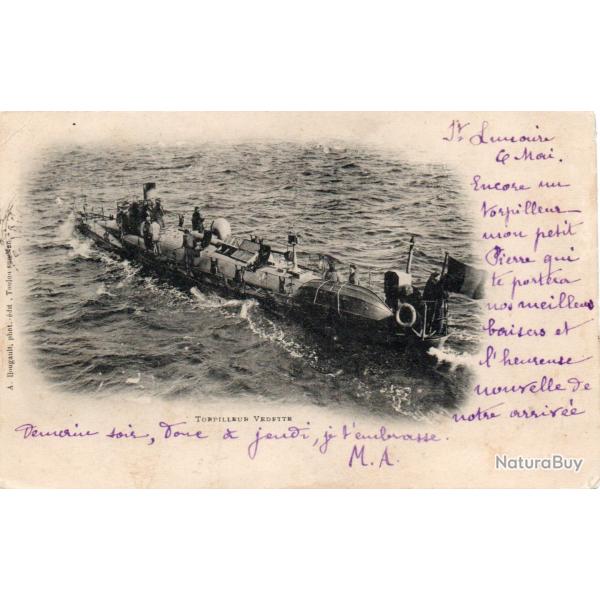 6 Mai.
Encore un
torpilleur
mon petit
Pierre qui
te portera
nos meilleurs
baisers et
l'heureuse
nouvelle de
notre arrivée
Demain soir, donc à jeudi, je t'embrasse.
M. A.
TORPILLEUR VEDETTE
A. Bougault, phot.-édit., Toulon
NaturaBuy